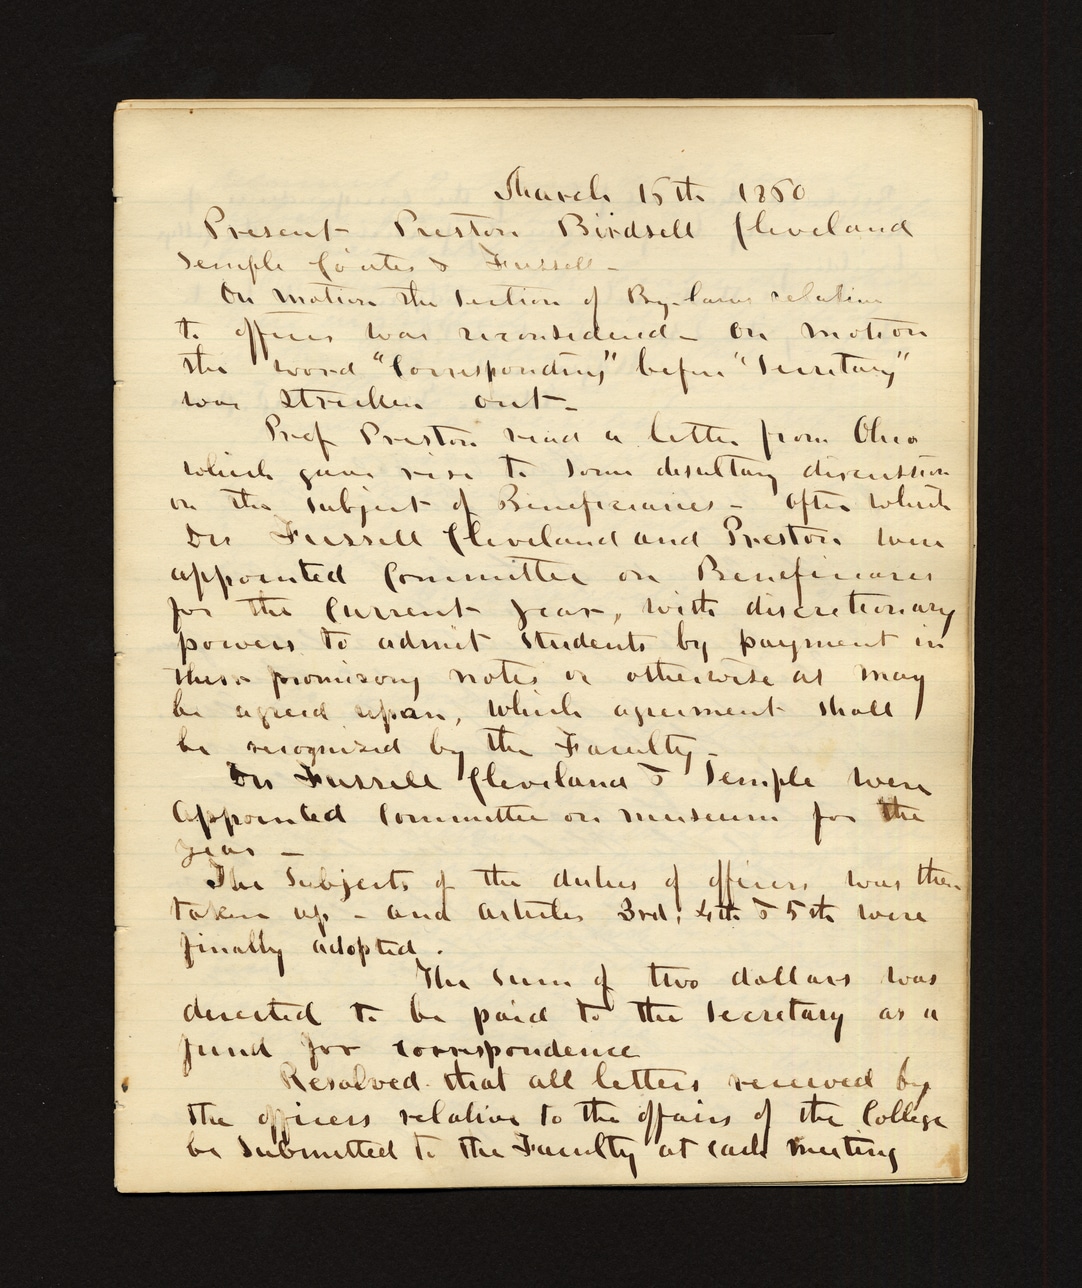 March 15th 1860
Present Preston Birdsell Cleveland
Semple Coates & Fussell -
On motion the Section of By-laws relative
to officers was reconsidered - On motion
the word "Corresponding" before "Secretary"
was stricken out -
Prof Preston read a letter from Ohio
which gave rise to some desultary discussion
on the subject of Beneficiaries - After which
Drs Fussell Cleveland and Preston were
appointed Committee on Beneficiares
for the Current year, with discretionary
powers to admit students by payment in
their promisory notes or otherwise as may
be agreed upon, which agreement shall
be recognized by the Faculty -
Drs Fussell Cleveland & Semple were
Appointed Committee on museum for the
year -
The Subjects of the duties of officers was then
taken up - and articles 3rd, 4th & 5th were
finally adopted.
The Sum of two dollars was
directed to be paid to the Secretary as a
fund for correspondence
Resolved that all letters received by
the officers relative to the affairs of the College
be Submitted to the Faculty at each meeting